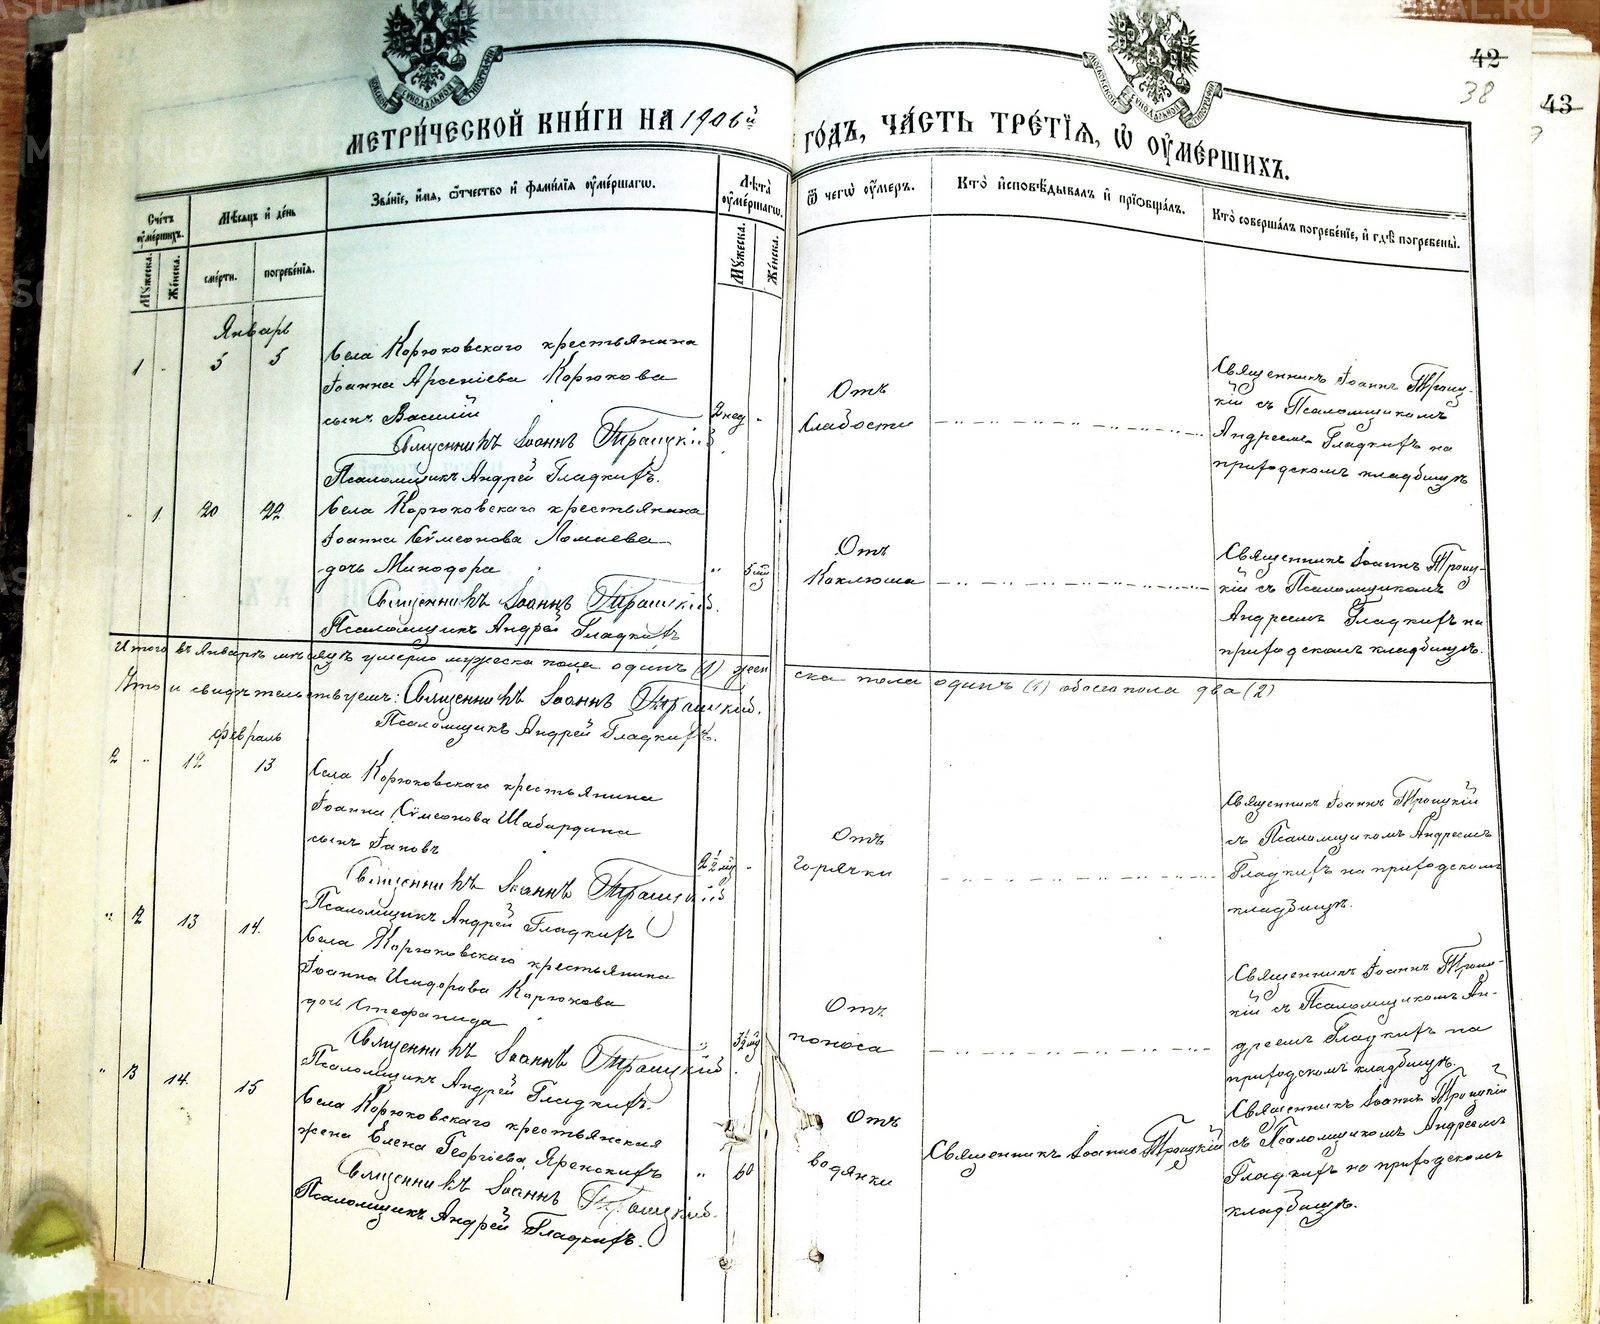 МЕТРИ́ЧЕСКОЙ КНИ́ГИ НА 1906й ГО́ДЪ, ЧА́СТЬ ТРЕ́ТІѦ, Ѽ ОУ҆МЕ́РШИХЪ.
42
38
43
Сче́тъ оу҆ме́ршихъ.
Мѣ́сяцъ и҆ де́нь
Зва́ніе, и҆́мя, ѻ҆́тчество и҆ фами́лія оу҆ме́ршагѡ.
Лѣ́та оу҆ме́ршагѡ.
Ѿ чегѡ̀ оу҆́меръ.
Кто̀ и҆сповѣ́дывалъ и҆ прїѡбща́лъ.
Кто̀ соверша́лъ погребе́нїе, и҆ гдѣ̀ погребены̀.
Мꙋ́жеска.
Же́нска.
сме́рти.
погребе́нїя.
Мꙋ́жеска.
Же́нска.
Январь
1 - 5 5
Села Корюковскаго крестьянина
Іоанна Арсеніева Корюкова
сынъ Василій
2 нед -
Священникъ Іоаннъ Троицкій
Псаломщикъ Андрей Гладкихъ.
Отъ
слабости
Священникъ Іоаннъ Троиц-
кій съ Псаломщикомъ
Андреемъ Гладкихъ на
приходскомъ кладбищѣ
- 1 20 22
Села Корюковскаго крестьянина
Іоанна Сѵмеонова Ломаева
дочь Минодора
" 5 мц
Священникъ Іоаннъ Троицкій.
Псаломщикъ Андрей Гладкихъ
Отъ
Коклюша
Священникъ Іоаннъ Троиц-
кій съ Псаломщикомъ
Андреемъ Гладкихъ на
приходскомъ кладбищѣ.
Итого въ Январѣ мѣсяцѣ умерло мужеска пола одинъ (1) жен
ска пола одинъ (1) обоего пола два (2)
Что и свидѣтельствуемъ: Священникъ Іоаннъ Троицкій.
Псаломщикъ Андрей Гладкихъ.
Февраль
2 " 12 13
Села Корюковскаго крестьянина
Іоанна Сѵмеонова Шабардина
сынъ Іаковъ
2½ мц -
Священникъ Іоаннъ Троицкій
Псаломщикъ Андрей Гладкихъ
Отъ
горячки
Священникъ Іоаннъ Троицкій
съ Псаломщикомъ Андреемъ
Гладкихъ на приходскомъ
кладбищѣ.
" 2 13 14.
Села Корюковскаго крестьянина
Іоанна Исидорова Корюкова
дочь Стефанида
" 3½ мц
Священникъ Іоаннъ Троицкій
Псаломщикъ Андрей Гладкихъ.
Отъ
поноса
Священникъ Іоаннъ Троиц-
кій съ Псаломщикомъ Ан-
дреемъ Гладкихъ на
приходскомъ кладбищѣ.
" 3 14. 15
Села Корюковскаго крестьянская
жена Елена Георгіева Яренскихъ
" 60
Священникъ Іоаннъ Троицкій.
Псаломщикъ Андрей Гладкихъ.
Отъ
водянки
Священникъ Іоаннъ Троицкій
Священникъ Іоаннъ Троицкій
съ Псаломщикомъ Андреемъ
Гладкихъ на приходскомъ
кладбищѣ.